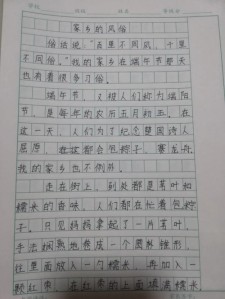 家乡的风俗
俗话说："百里不同风，千里
不同俗。"我的家乡在端午节那天
也有着很多习俗。
端午节，又被人们称为端阳
节，是每年的农历五月初五。在
这一天，人们为了纪念楚国诗人
屈原，在家都会包粽子、赛龙舟，
我的家乡也不例外。
走在街上，到处都是茗叶和
糯米的香味，人们都在忙着包粽
子。只见妈妈拿起了一片茗叶，
手法娴熟地卷成一个圆锥形，
往里面放入一勺糯米，再加入一
颗红枣，在红枣的上面填满糯米